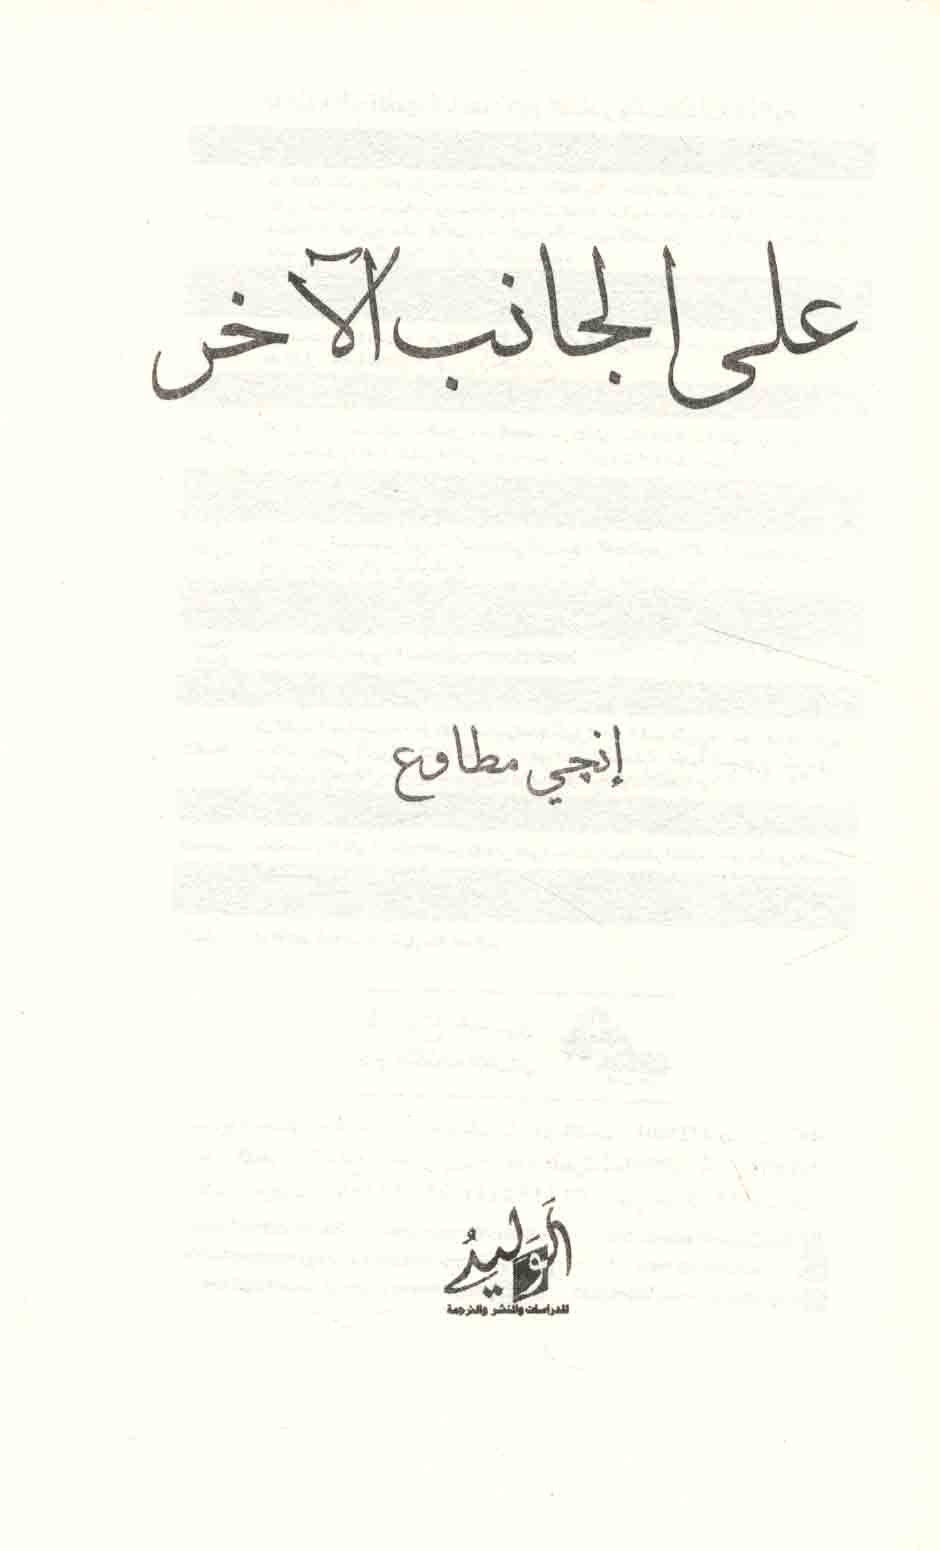 على الجانب الآخر
إنجي مطاوع
الوليد
للدراسات والنشر والترجمة